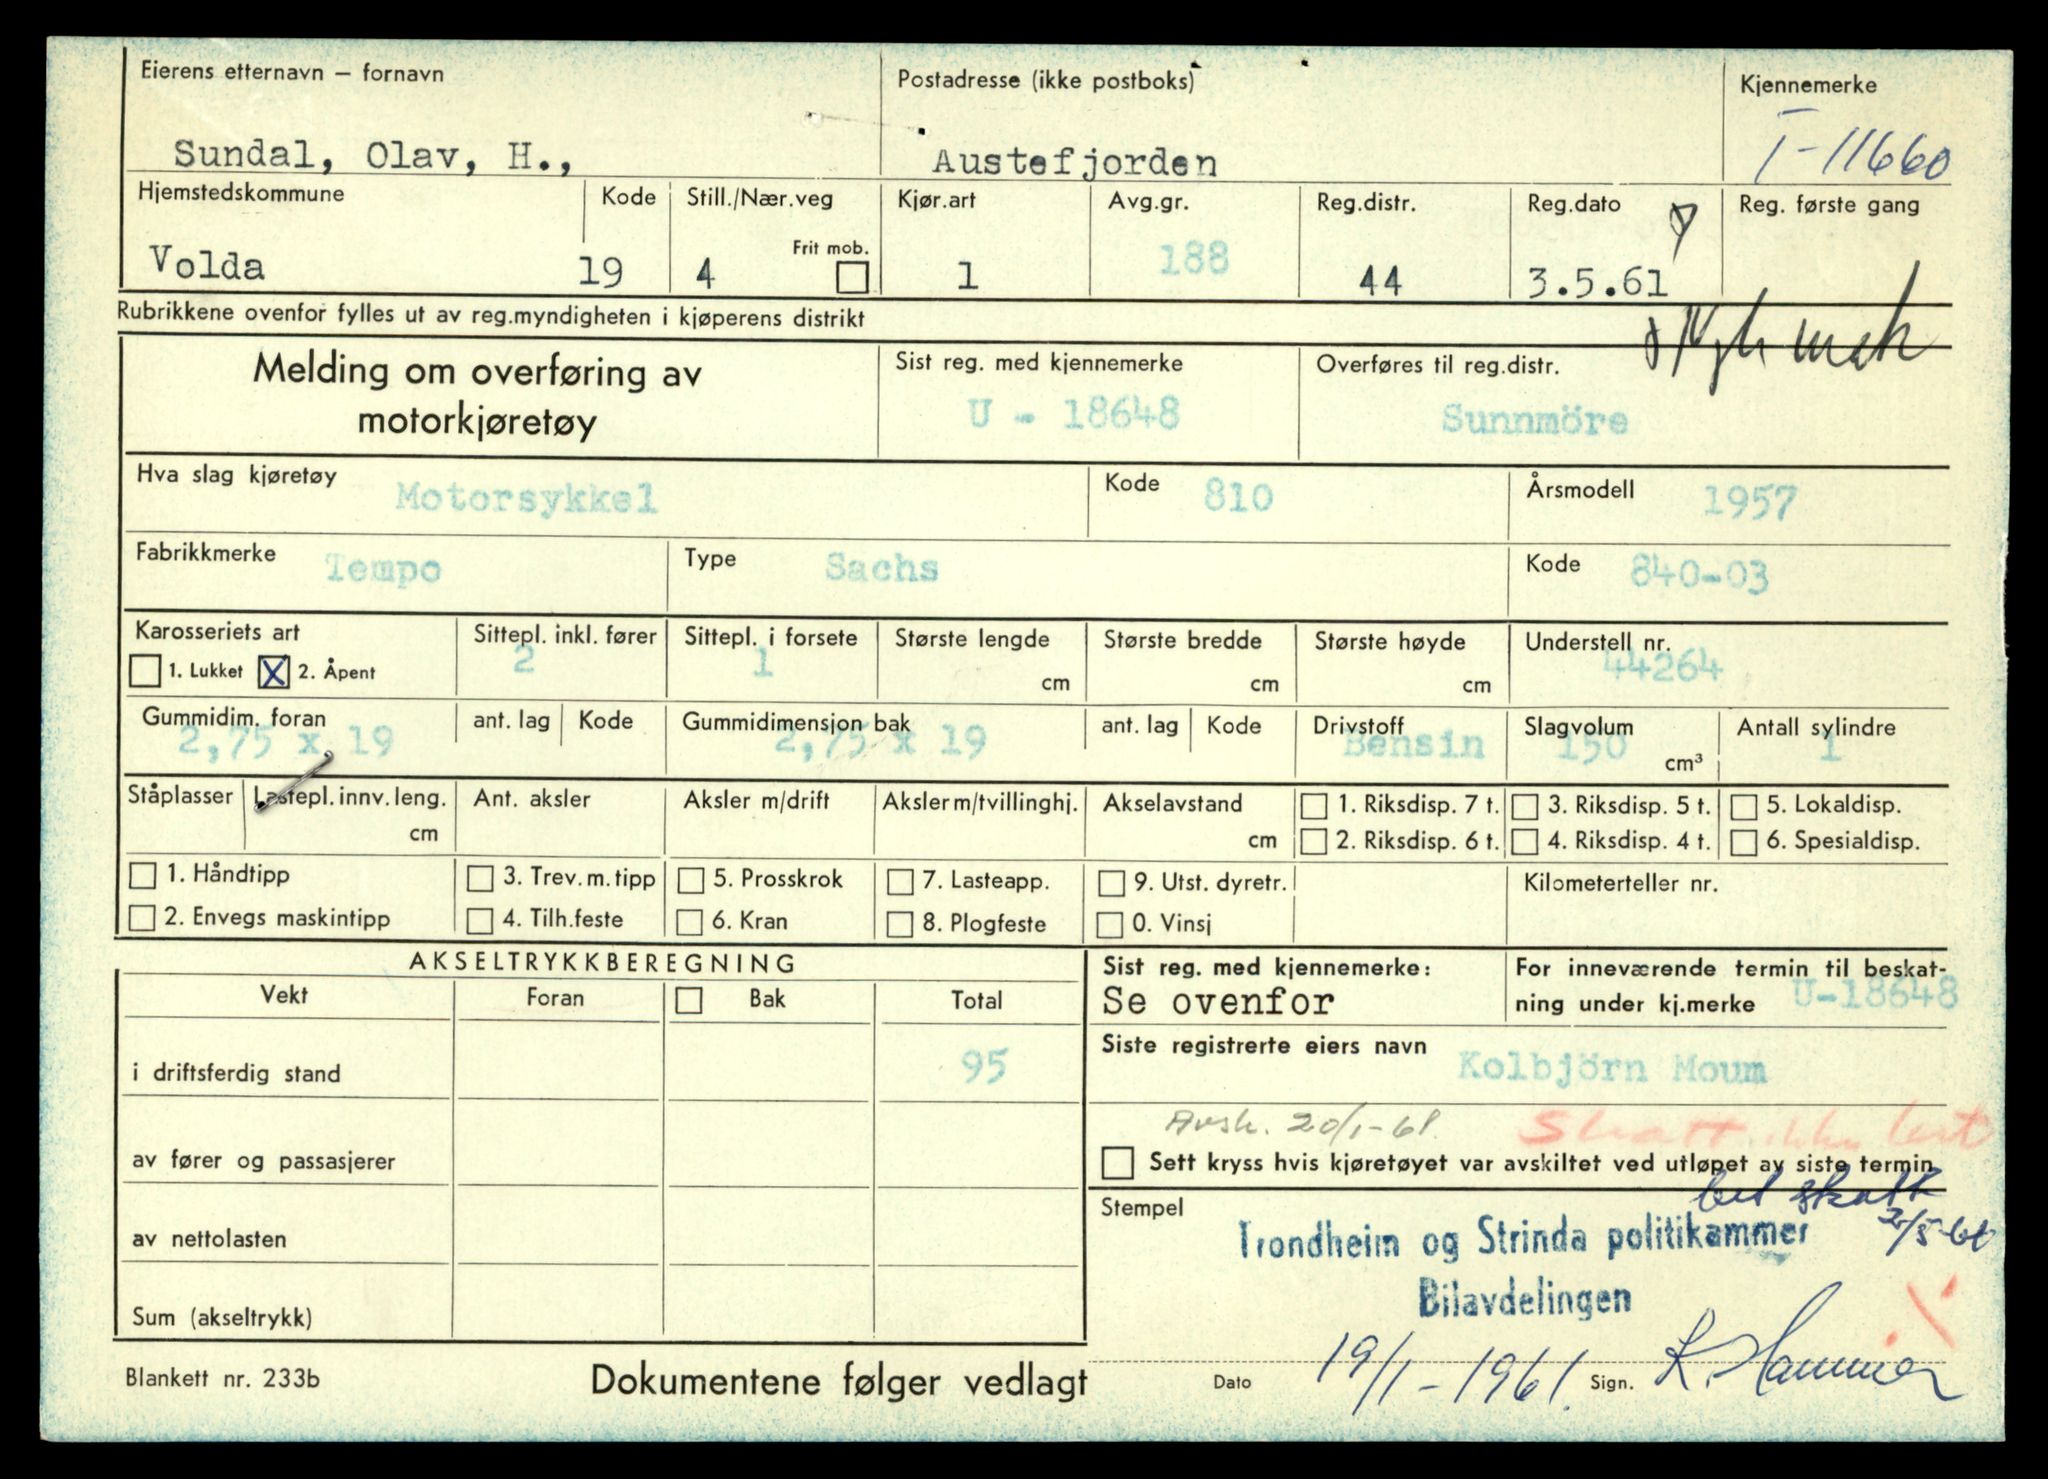 Eierens etternavn – fornavn Postadresse (ikke postboks) Kjennemerke
Sundal, Olav, H., Austefjorden T-11660
Hjemstedskommune Kode Still./Nær.veg Kjør.art Avg.gr. Reg.distr. Reg.dato Reg. første gang
Frit mob.
Volda 19 4 1 188 44 3.5.61
Rubrikkene ovenfor fylles ut av reg.myndigheten i kjøperens distrikt
Melding om overføring av motorkjøretøy
Sist reg. med kjennemerke Overføres til reg.distr.
U - 18648 Sunnmöre
Hva slag kjøretøy Motorsykkel Kode 810 Årsmodell 1957
Fabrikkmerke Tempo Type Sachs Kode 840-03
Karosseriets art Sittepl. inkl. fører Sittepl. i forsete Største lengde Største bredde Største høyde Understell nr.
1. Lukket X 2. Åpent 2 1 cm cm cm 44264
Gummidim. foran ant. lag Kode Gummidimensjon bak ant. lag Kode Drivstoff Slagvolum Antall sylindre
2,75 x 19 2,75 x 19 Bensin 150 cm³ 1
Ståplasser Lastepl. innv. leng. Ant. aksler Aksler m/drift Aksler m/tvillinghj. Akselavstand 1. Riksdisp. 7 t. 3. Riksdisp. 5 t. 5. Lokaldisp.
cm cm 2. Riksdisp. 6 t. 4. Riksdisp. 4 t. 6. Spesialdisp.
1. Håndtipp 3. Trev. m. tipp 5. Prosskrok 7. Lasteapp. 9. Utst. dyretr. Kilometerteller nr.
2. Envegs maskintipp 4. Tilh.feste 6. Kran 8. Plogfeste 0. Vinsj
AKSELTRYKKBEREGNING
Vekt Foran Bak Total
i driftsferdig stand 95
av fører og passasjerer
av nettolasten
Sum (akseltrykk)
Sist reg. med kjennemerke:
Se ovenfor
For inneværende termin til beskat-
ning under kj.merke U-18648
Siste registrerte eiers navn Kolbjörn Moum
Avsk. 20/1-61. Skatt ikke bet
Sett kryss hvis kjøretøyet var avskiltet ved utløpet av siste termin
bet skatt
Stempel
Trondheim og Strinda politikammer
Bilavdelingen
Dato 19/1-1961. Sign. K. Hammer
Blankett nr. 233b Dokumentene følger vedlagt